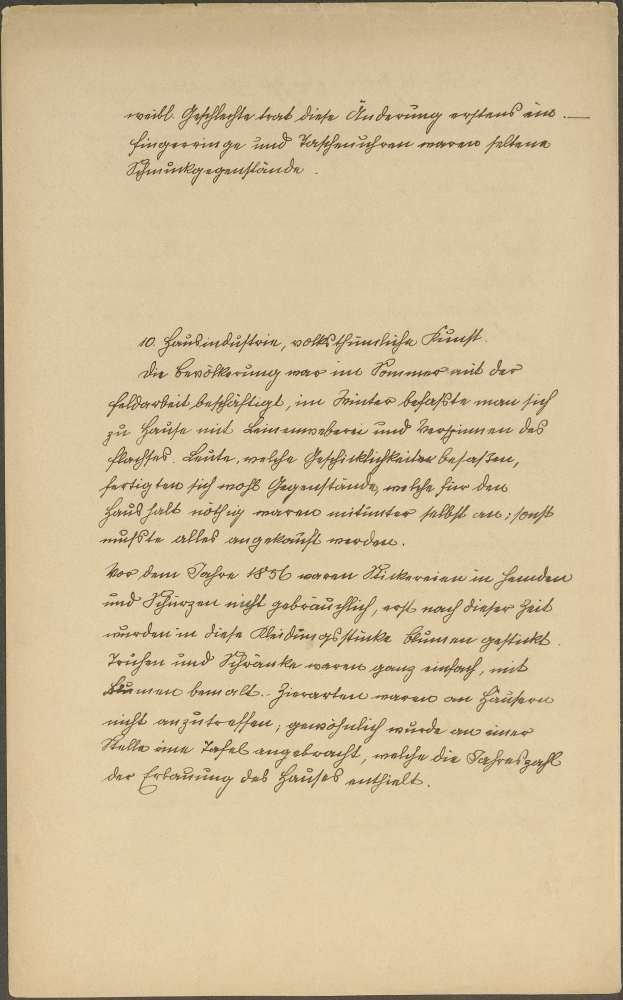 weibl. Geschlechte trat diese Änderung erstens ein. —
Fingerringe und Taschenuhren waren seltene
Schmuckgegenstände.
10. Hausindustrie, volksthümliche Kunst.
Die Bevölkerung war im Sommer mit der
Feldarbeit beschäftigt, im Winter befaßte man sich
zu Hause mit Leinenweberei und Verspinnen des
Flachses. Leute, welche Geschicklichkeiten besaßen,
fertigten sich wohl Gegenstände, welche für den
Haushalt nöthig waren mitunter selbst an; sonst
mußte alles angekauft werden.
Vor dem Jahre 1856 waren Stickereien in Hemden
und Schürzen nicht gebräuchlich, erst nach dieser Zeit
wurden in diese Kleidungsstücke Blumen gestickt.
Truhen und Schränke waren ganz einfach, mit
Blumen bemalt. Zierarten waren an Häusern
nicht anzutreffen; gewöhnlich wurde an einer
Stelle eine Tafel angebracht, welche die Jahreszahl
der Erbauung des Hauses enthielt.